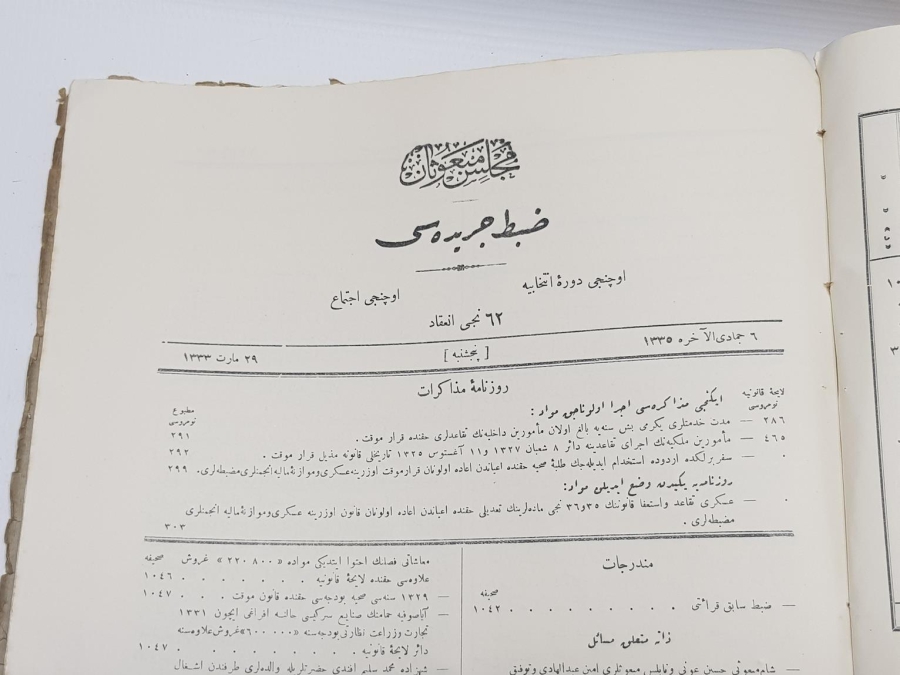 مجلس مبعوثان
ضبط جریده‌سی
اوچنجی دورهٔ انتخابیه
اوچنجی اجتماع
٦٢ نجی انعقاد
٦ جمادی‌الآخره ١٣٣٥
[ پنجشنبه ]
٢٩ مارت ١٣٣٣
روزنامهٔ مذاکرات
لایحهٔ قانونیه نومروسی
مطبوع نومروسی
ایکنجی مذاکره‌سی اجرا اولوناجق مواد :
٢٨٦ — مدت خدمتلری یکرمی بش سنه‌یه بالغ اولان مأمورین داخلیه‌نك تقاعدلری حقنده قرار موقت . ٢٩١
٤٦٥ — مأمورین ملکیه‌نك اجرای تقاعدینه دائر ٨ شعبان ١٣٢٧ و ١١ آغستوس ١٣٢٥ تاریخلی قانونه مذیل قرار موقت . ٢٩٢
٠ — سفربرلکده اردوده استخدام ایدیله‌جك طلبهٔ صحیه حقنده اعیاندن اعاده اولونان قرار موقت اوزرینه عسکری و موازنهٔ مالیه انجمنلری مضبطه‌لری. ٢٩٩
روزنامه‌یه یکیدن وضع ایدیلن مواد:
٠ — عسکری تقاعد واستعفا قانوننك ٣٥ و ٣٦ نجی ماده‌لرینك تعدیلی حقنده اعیاندن اعاده اولونان قانون اوزرینه عسکری و موازنهٔ مالیه انجمنلری
مضبطه‌لری . ٣٠٣
مندرجات
صحیفه
— ضبط سابق قرائتی . . . . . . . . ١٠٤٢
ذاته متعلق مسائل
— شام مبعوثی حسین عونی و نابلس مبعوثلری امین عبدالهادی و توفیق
صحیفه
معاشاتی فصلنك احتوا ایتدیکی مواده «٢٢٠٨٠٠» غروش
علاوه‌سی حقنده لایحهٔ قانونیه . . . . . . . ١٠٤٦
— ١٣٢٩ سنه‌سی صحیه بودجه‌سی حقنده قانون موقت . . . ١٠٤٧
— آیاصوفیه حمامنك صنایع سرکیسی حالنه افراغی ایچون ١٣٣١
تجارت و زراعت نظارتی بودجه‌سنه «٦٠٠٠٠٠» غروش علاوه‌سنه
دائر لایحهٔ قانونیه . . . . . . . . ١٠٤٧
— شهزاده محمد سلیم افندی حضرتلریله والده‌لری طرفندن اشغال